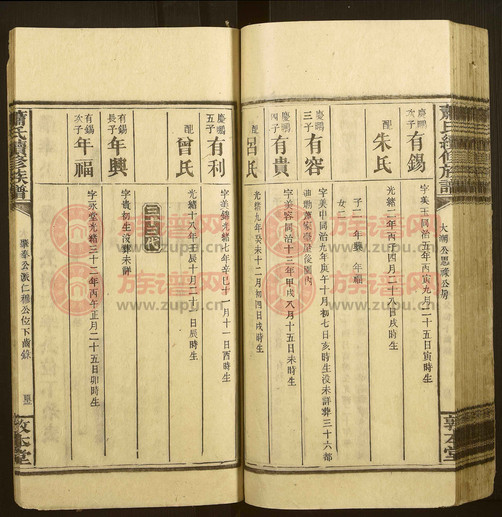 蕭氏續修族譜
大鵬公思祿公房
敦本堂
慶鵬
有錫
字美玉同治五年丙寅九月二十五日寅時生
配
朱氏
光緒二年丙子四月二十八日戌時生
子二 年興 年福
女二
慶鵬三子
有容
字美申同治九年庚午十月初七日亥時生沒未詳葬三十六都
慶鵬四子
有貴
字美容同治十三年甲戌八月十五日未時生
配
呂氏
光緒九年癸未十二月初四日戌時生
慶鵬五子
有利
字美錦光緒七年辛巳十一月十一日酉時生
配
曾氏
光緒十八年壬辰十月二十一日辰時生
三十三代
有錫長子
年興
字貴初生沒葬未詳
有錫次子
年福
字承堂光緒三十二年丙午正月二十五日卯時生
蕭氏續修族譜
肇奉公派仁稷公位下齒錄
敦本堂
族谱网
www.zupu.cn
族谱网
www.zupu.cn
族谱网
www.zupu.cn
族谱网
www.zupu.cn